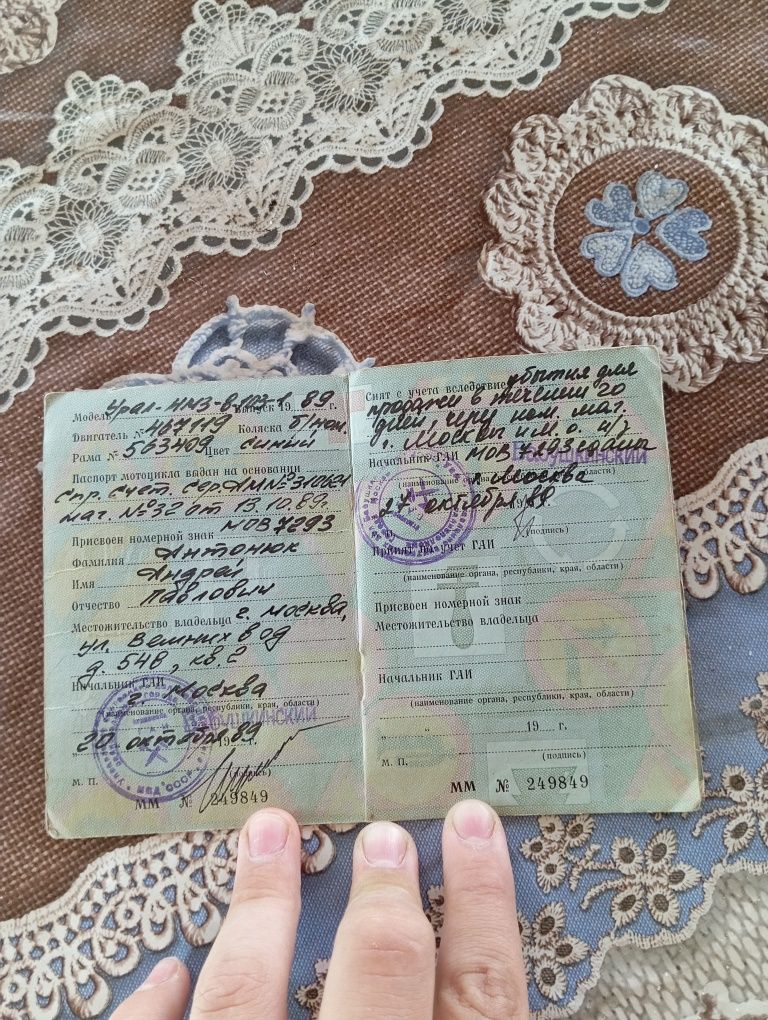 Модель Урал-ИМЗ-8-103-1. Выпуск 1989 г.
Двигатель № 467119 Коляска б/ном.
Рама № 563409 Цвет синий
Паспорт мотоцикла выдан на основании
Спр. счет. сер. АМ № 310621
маг. № 32 от 13.10.89.
Присвоен номерной знак МОВ 7293
Фамилия Антонюк
Имя Андрей
Отчество Павлович
Местожительство владельца г. Москва,
ул. Вешних вод
д. 54В, кв. 2
Начальник ГАИ
г. Москва
(наименование органа, республики, края, области)
Бабушкинский
20 октября 89 г.
(подпись)
М. П.
ММ № 249849
Снят с учета вследствие убытия для
продажи в течении 20
дней, чрез ком. маг.
г. Москвы и М.о. н/з
Начальник ГАИ МОВ 7293 сданы
Бабушкинский
г. Москва
(наименование органа, республики, края, области)
27 октября 89 г.
(подпись)
Принят на учет ГАИ
(наименование органа, республики, края, области)
Присвоен номерной знак
Местожительство владельца
Начальник ГАИ
(наименование органа, республики, края, области)
" " 19 г.
(подпись)
М. П.
ММ № 249849